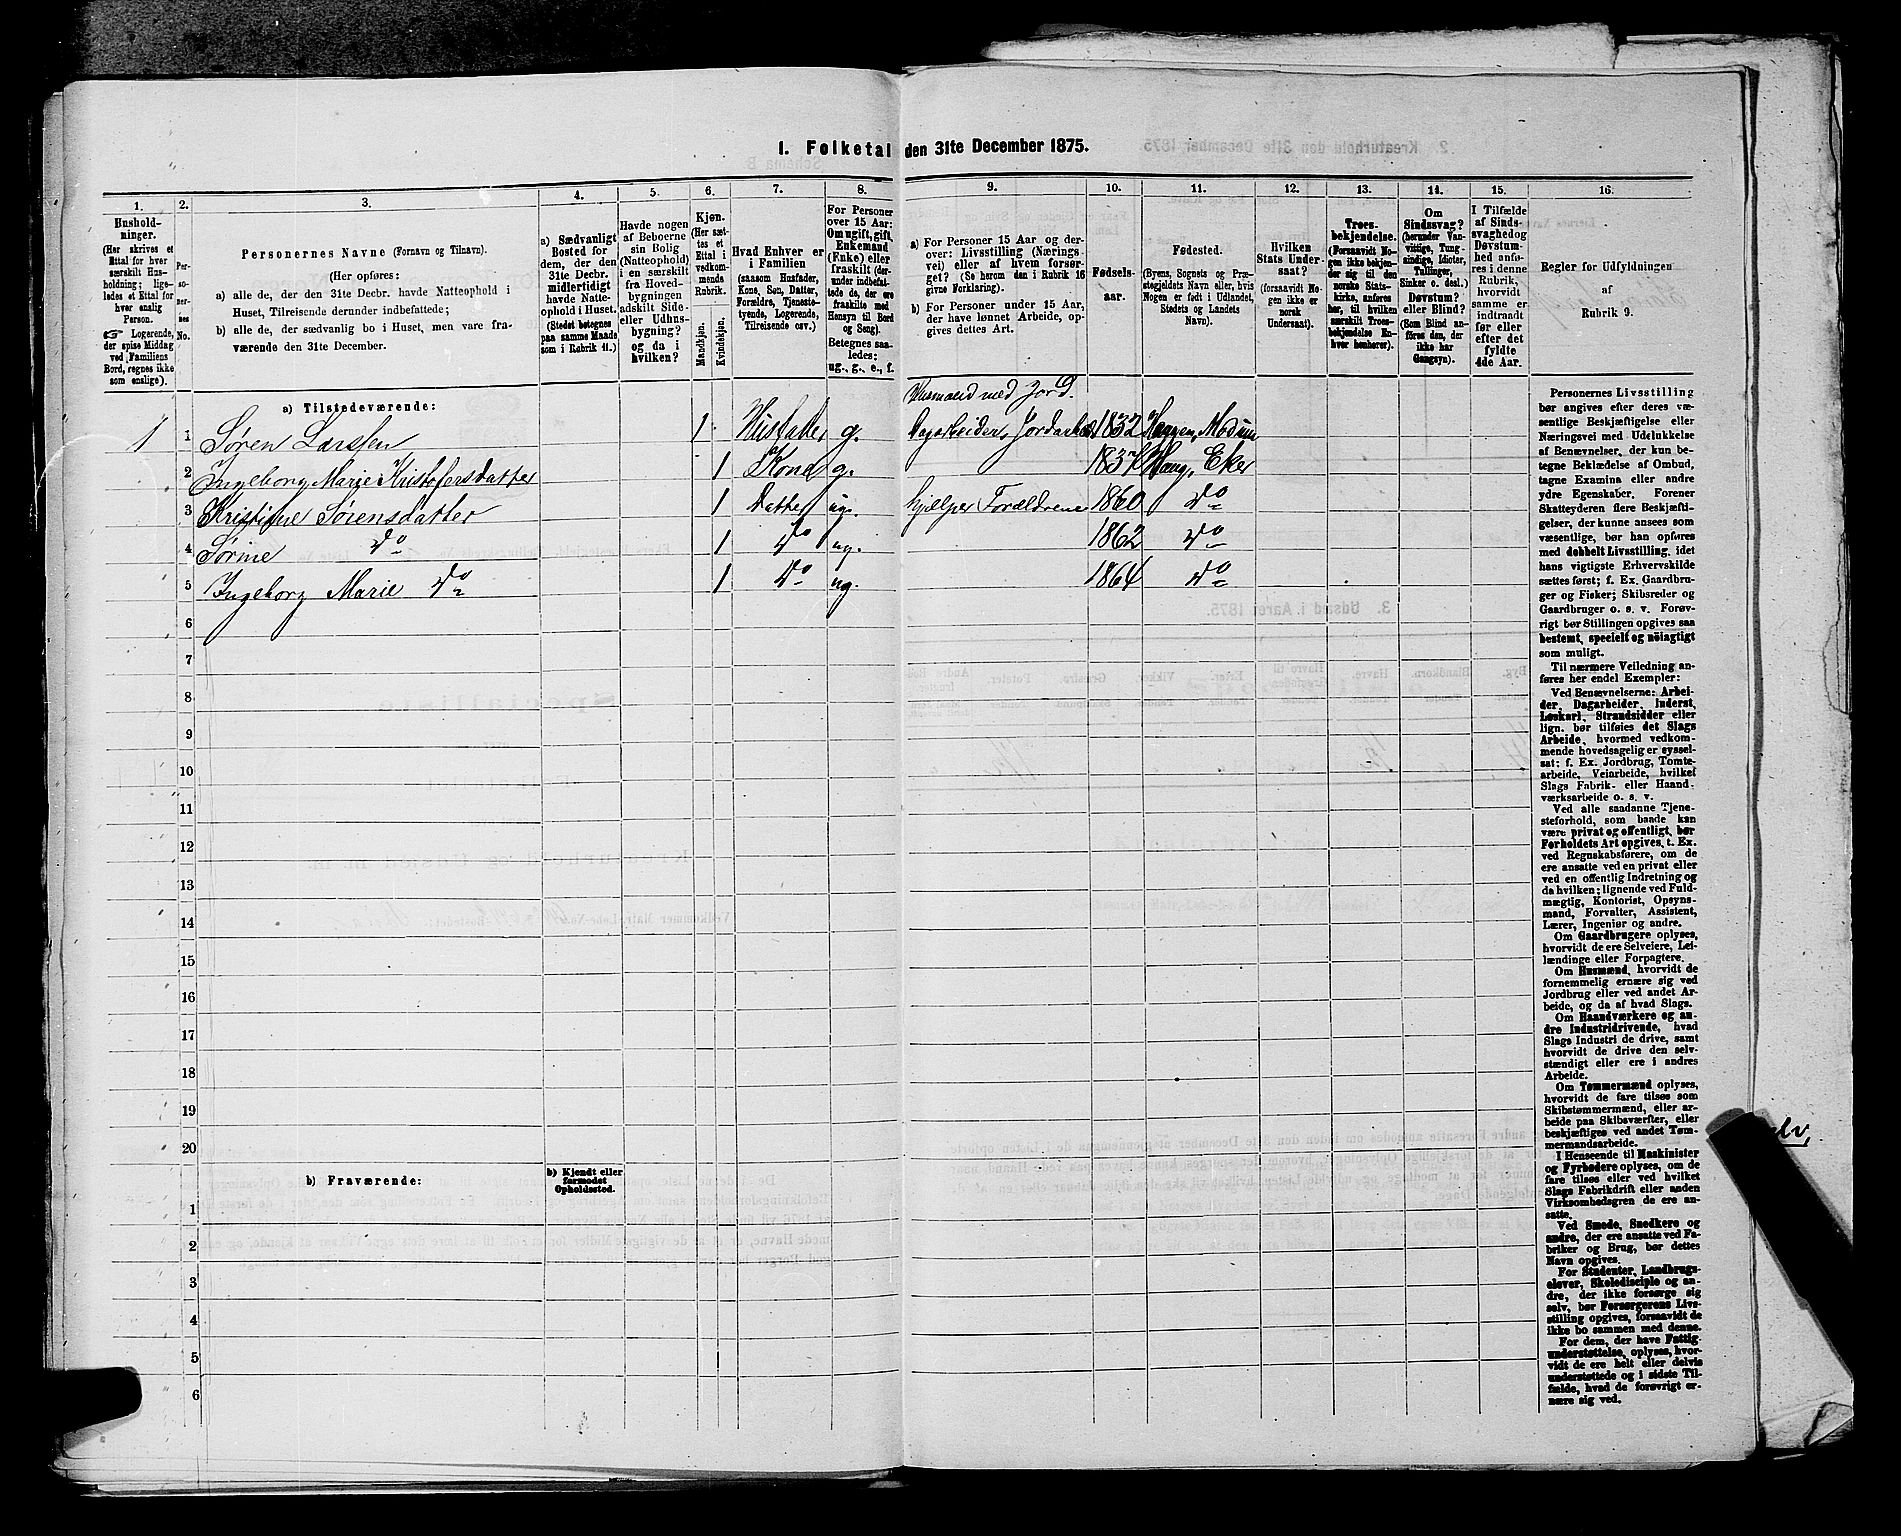 1. Folketal den 31te December 1875.
1. 2. 3. 4. 5. 6. 7. 8. 9. 10. 11. 12. 13. 14. 15. 16.
Husholdninger.
(Her skrives et Ettal for hver særskilt Husholdning; ligeledes et Ettal for hver enslig Person.
Logerende, der spise Middag ved Familiens Bord, regnes ikke som enslige).
Personernes No.
Personernes Navne (Fornavn og Tilnavn).
(Her opføres:
a) alle de, der den 31te Decbr. havde Natteophold i Huset, Tilreisende derunder indbefattede;
b) alle de, der sædvanlig bo i Huset, men vare fraværende den 31te December.
a) Sædvanligt Bosted for dem, der den 31te Decbr. midlertidigt havde Natteophold i Huset.
(Stedet betegnes paa samme Maade som i Rubrik 11.)
Havde nogen af Beboerne sin Bolig (Natteophold) i en særskilt fra Hovedbygningen adskilt Side- eller Udhusbygning? og da i hvilken?
Kjøn.
(Her sættes et Ettal i vedkommende Rubrik.
Mandkjøn. Kvindekjøn.
Hvad Enhver er i Familien
(saasom Husfader, Kone, Søn, Datter, Forældre, Tjenestetyende, Logerende, Tilreisende osv.)
For Personer over 15 Aar: Om ugift, gift, Enkemand (Enke) eller fraskilt (derunder indbefattede de, der ere fraskilte med Hensyn til Bord og Seng).
Betegnes saaledes: ug., g., e., f.
a) For Personer 15 Aar og derover: Livsstilling (Næringsvei) eller af hvem forsørget? (Se herom den i Rubrik 16 givne Forklaring).
b) For Personer under 15 Aar, der have lønnet Arbeide, opgives dettes Art.
Fødselsaar.
Fødested.
(Byens, Sognets og Præstegjeldets Navn eller, hvis Nogen er født i Udlandet, Stedets og Landets Navn).
Hvilken Stats Undersaat?
(forsaavidt Nogen ikke er norsk Undersaat).
Troesbekjendelse.
(Forsaavidt Nogen ikke bekjender sig til den norske Statskirke, anføres her, til hvilken særskilt Troesbekjendelse Enhver henhører).
Om Sindssvag? (herunder Vanvittige, Tungsindige, Idioter, Tullinger, Sinker o. desl.) Døvstum? eller Blind? (Som Blind anføres den, der ikke har Gangsyn).
I Tilfælde af Sindssvaghed og Døvstumhed anføres i denne Rubrik, hvorvidt samme er indtraadt før eller efter det fyldte 4de Aar.
Regler for Udfyldningen
af
Rubrik 9.
a) Tilstedeværende:
Husmand med Jord.
1 1 Søren Larssen 1 Husfader g. Dagarbeider, Jordarbeide 1832 Heggen, Modum
2 Ingeborg Marie Kristofersdatter 1 Kone g. 1837 Haug, Eker
3 Kristine Sørensdatter 1 Datter ug. hjælper Forældrene 1860 Do
4 Sørine Do 1 Do ug. 1862 Do
5 Ingeborg Marie Do 1 Do ug 1864 Do
6
7
8
9
10
11
12
13
14
15
16
17
18
19
20
b) Fraværende:
b) Kjendt eller formodet Opholdssted.
1
2
3
4
5
6
Personernes Livsstilling
bør angives efter deres væ-
sentlige Beskjæftigelse eller
Næringsvei med Udelukkelse
af Benævnelser, der kun be-
tegne Beklædelse af Ombud,
tagne Examina eller andre
ydre Egenskaber. Forener
Skatteyderen flere Beskjæfti-
gelser, der kunne ansees som
væsentlige, bør han opføres
med dobbelt Livsstilling, idet
hans vigtigste Erhvervskilde
sættes først; f. Ex. Gaardbru-
ger og Fisker; Skibsreder og
Gaardbruger o. s. v. Forøv-
rigt bør Stillingen opgives saa
bestemt, specielt og nöiagtigt
som muligt.
Til nærmere Veiledning an-
føres her endel Exempler:
Ved Benævnelserne: Arbei-
der, Dagarbeider, Inderst,
Løskarl, Strandsidder eller
lign. bør tilføies det Slags
Arbeide, hvormed vedkom-
mende hovedsagelig er syssel-
sat: f. Ex. Jordbrug, Tomte-
arbeide, Veiarbeide, hvilket
Slags Fabrik- eller Haand-
værksarbeide o. s. v.
Ved alle saadanne Tjene-
steforhold, som baade kan
være privat og offentligt, bør
Forholdets Art opgives, t. Ex.
ved Regnskabsførere, om de
ere ansatte ved en privat eller
ved en offentlig Indretning og
da hvilken; lignende ved Fuld-
mægtig, Kontorist, Opsyns-
mand, Forvalter, Assistent,
Lærer, Ingeniør og andre.
Om Gaardbrugere oplyses,
hvorvidt de ere Selveiere, Lei-
lændinge eller Forpagtere.
Om Husmænd, hvorvidt de
fornemmelig ernære sig ved
Jordbrug eller ved andet Ar-
beide, og da af hvad Slags.
Om Haandværkere og an-
dre Industridrivende, hvad
Slags Industri de drive, samt
hvorvidt de drive den selv-
stændigt eller ere i andres
Arbeide.
Om Tømmermænd oplyses,
hvorvidt de fare tilsøs som
Skibstømmermænd, eller ar-
beide paa Skibsværfter, eller
beskjæftiges ved andet Tøm-
mermandsarbeide.
I Henseende til Maskinister
og Fyrbødere oplyses, om de
fare tilsøs eller ved hvilket
Slags Fabrikdrift eller anden
Virksombedsgren de ere an-
satte.
Ved Smede, Snedkere og
andre, der ere ansatte ved Fa-
briker og Brug, bør dettes
Navn opgives.
For Studenter, Landbrugs-
elever, Skoledisciple og an-
dre, der ikke forsørge sig
selv, bør Forsørgerens Livs-
stilling opgives, forsaavidt de
ikke bo sammen med denne.
For dem, der have Fattig-
understøttelse, oplyses, hvor-
vidt de ere helt eller delvis
understøttede og i sidste Til-
fælde, hvad de forøvrigt er-
nære sig ved.